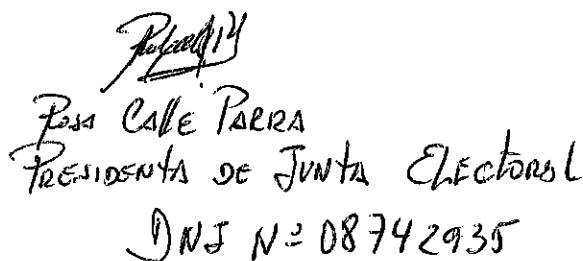 Rosa Calle Parra
PRESIDENTA DE JUNTA ELECTORAL
DNI Nº 08742935